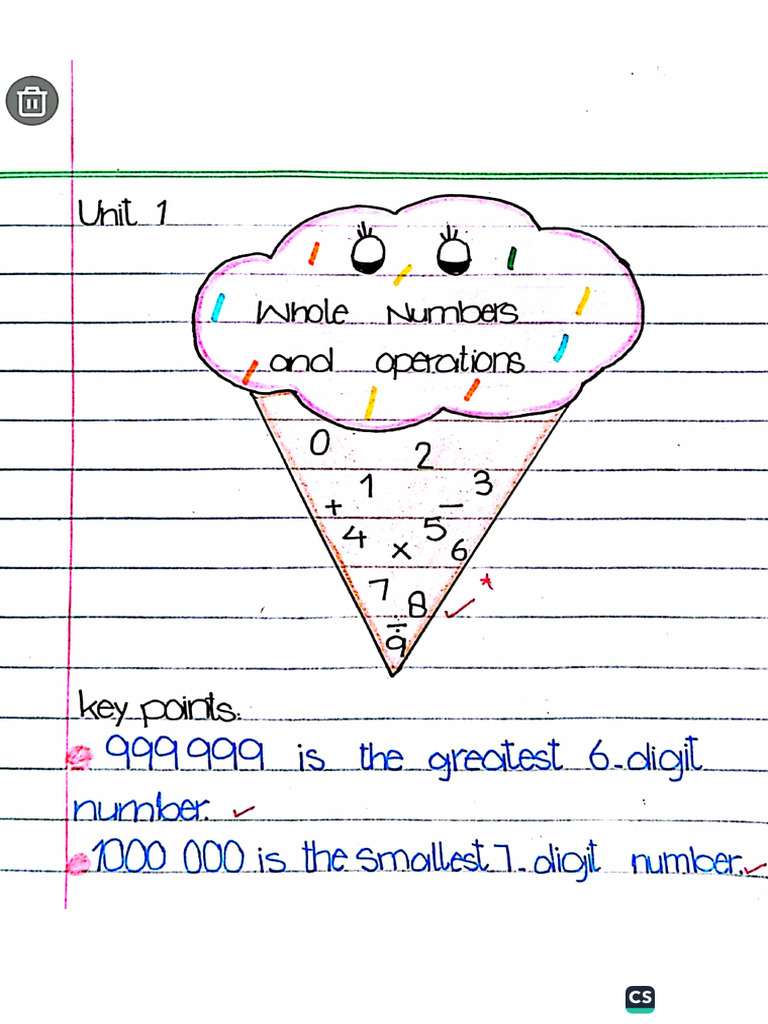 Unit 1
Whole Numbers
and operations
0 2
1 3
+ -
4 5
× 6
7 8
÷
9
key points:
999 999 is the greatest 6-digit
number.
1000 000 is the smallest 7-digit number.
CS